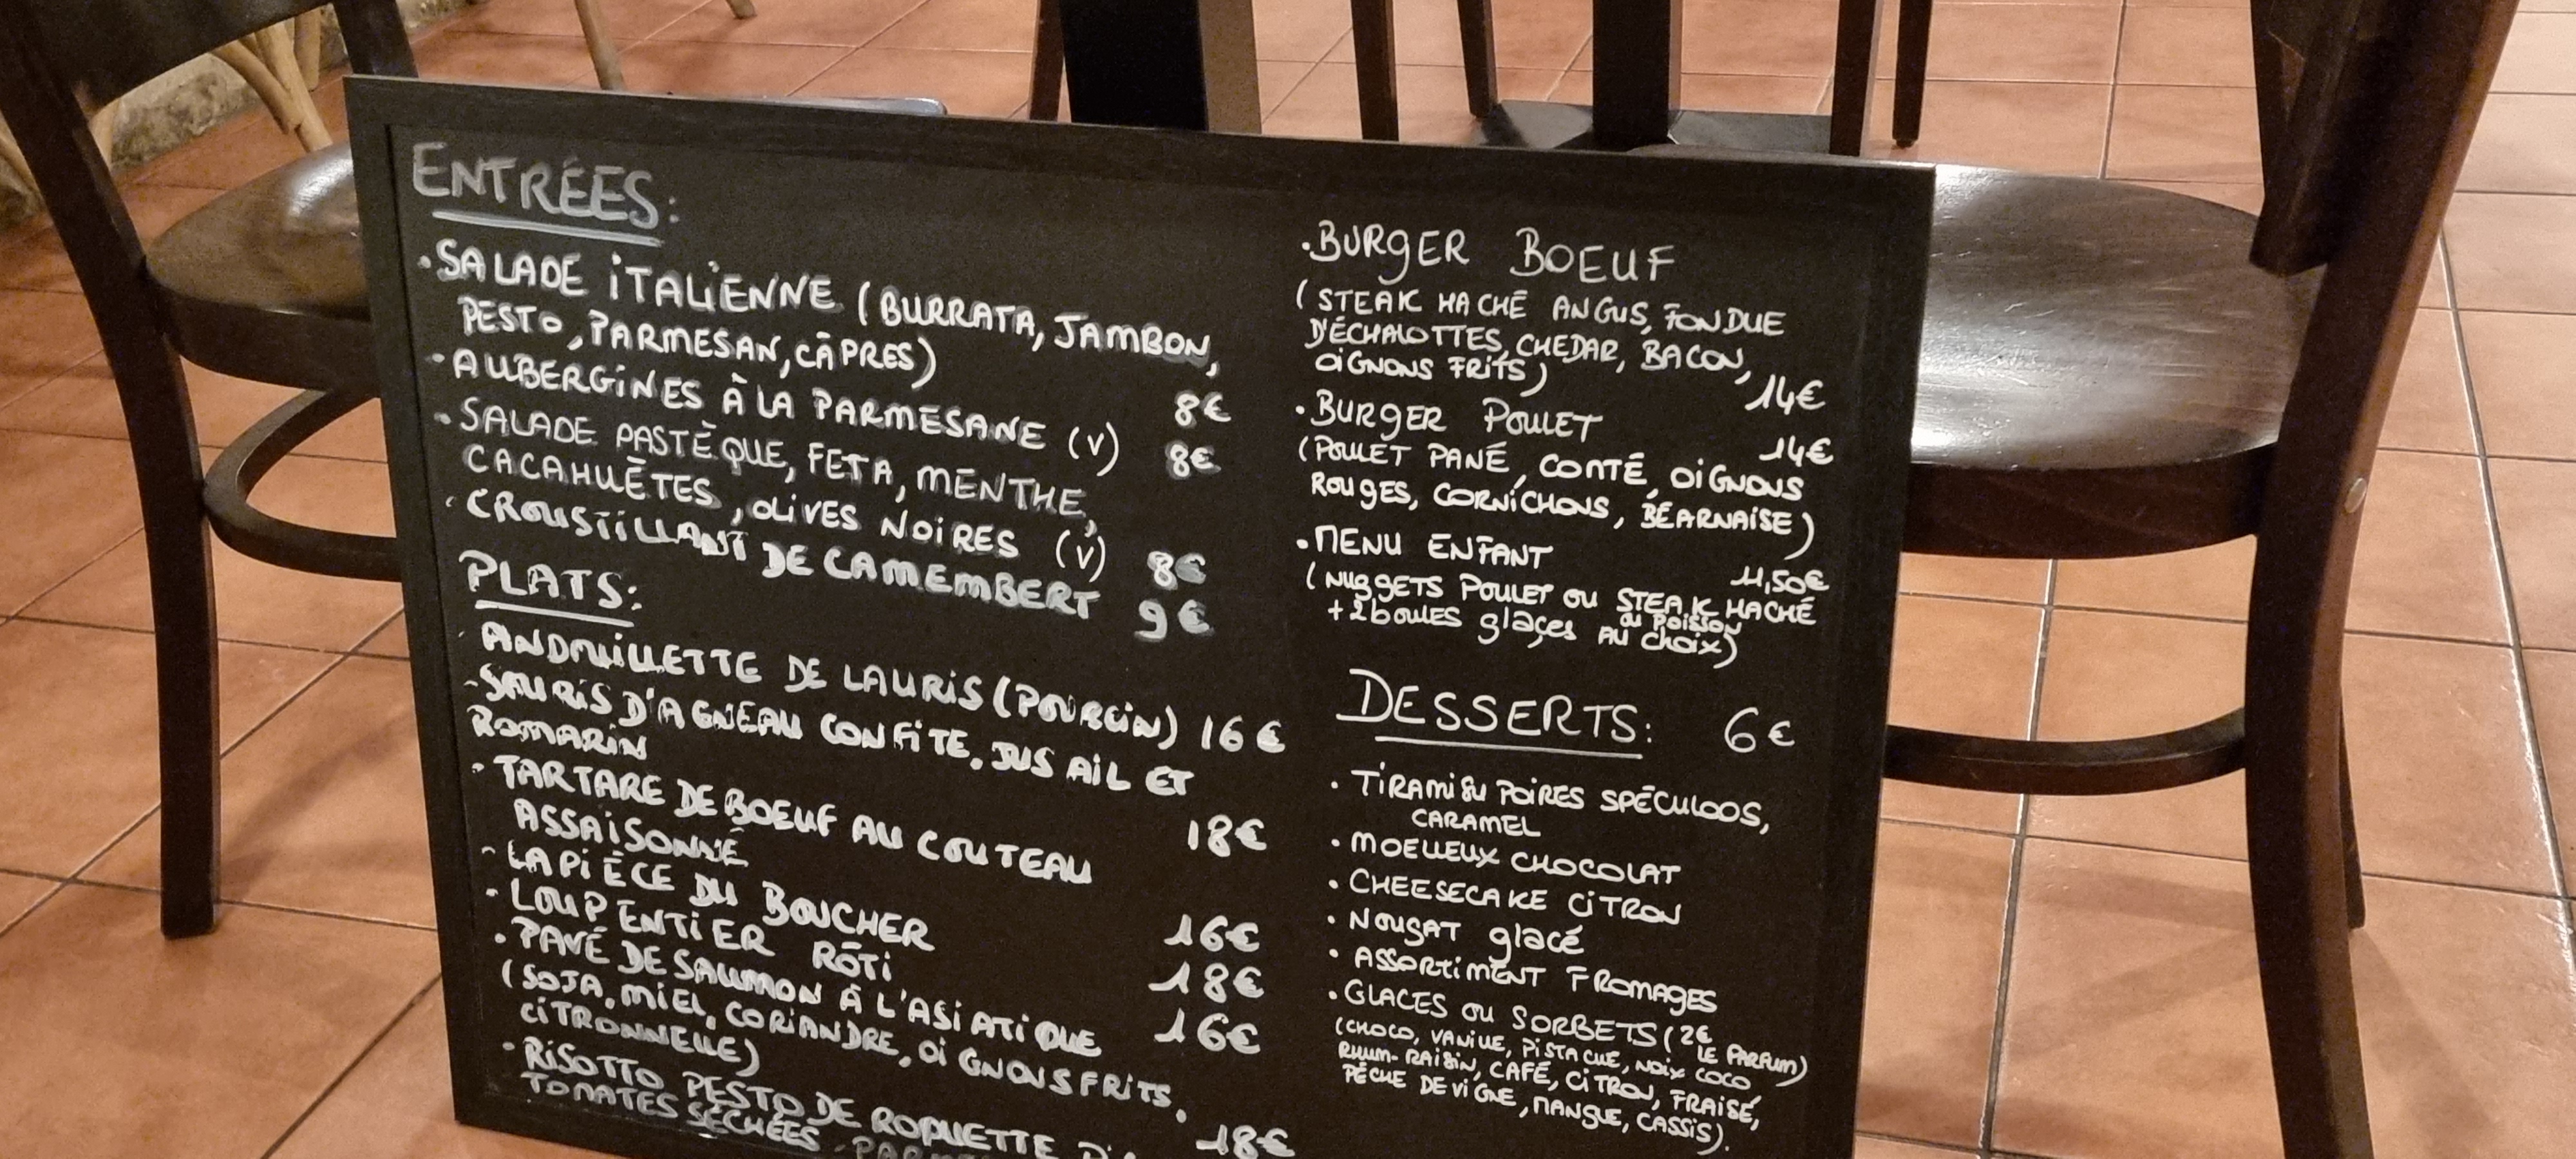 ENTRÉES:
·SALADE ITALIENNE (BURRATA, JAMBON,
PESTO, PARMESAN, CÂPRES) 8€
·AUBERGINES À LA PARMESANE (V) 8€
·SALADE PASTÈQUE, FETA, MENTHE,
CACAHUÈTES, OLIVES NOIRES (V) 8€
·CROUSTILLANT DE CAMEMBERT 9€
PLATS:
·ANDOUILLETTE DE LAURIS (POURCIN) 16€
-SOURIS D'AGNEAU CONFITE, JUS AIL ET
ROMARIN 18€
-TARTARE DE BOEUF AU COUTEAU
ASSAISONNÉ 16€
-LA PIÈCE DU BOUCHER 18€
-LOUP ENTIER RÔTI 16€
·PAVÉ DE SAUMON À L'ASIATIQUE
(SOJA, MIEL, CORIANDRE, OIGNONS FRITS,
CITRONNELLE) 18€
-RISOTTO PESTO DE ROQUETTE
TOMATES SÉCHÉES,
·BURGER BOEUF
(STEAK HACHÉ ANGUS, FONDUE
D'ÉCHALOTTES, CHEDAR, BACON,
OIGNONS FRITS) 14€
·BURGER POULET 14€
(POULET PANÉ, CONTÉ, OIGNONS
ROUGES, CORNICHONS, BÉARNAISE)
·MENU ENFANT 11,50€
(NUGGETS POULET OU STEAK HACHÉ
OU POISSON
+2 boules glaçes AU choix)
DESSERTS: 6€
·TIRAMISU POIRES SPÉCULOOS,
CARAMEL
·MOELLEUX CHOCOLAT
·CHEESECAKE CITRON
·NOUGAT glacé
·ASSORTIMENT FROMAGES
·GLACES OU SORBETS (2€
LE PARFUM)
(CHOCO, VANILLE, PISTACHE, NOIX COCO
RHUM-RAISIN, CAFÉ, CITRON, FRAISE,
PÊCHE DE VIGNE, MANGUE, CASSIS).